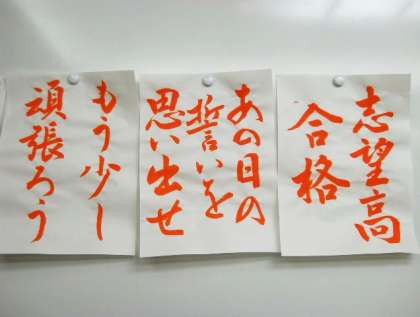 志望高
合格
あの日の
誓いを
思い出せ
もう少し
頑張ろう